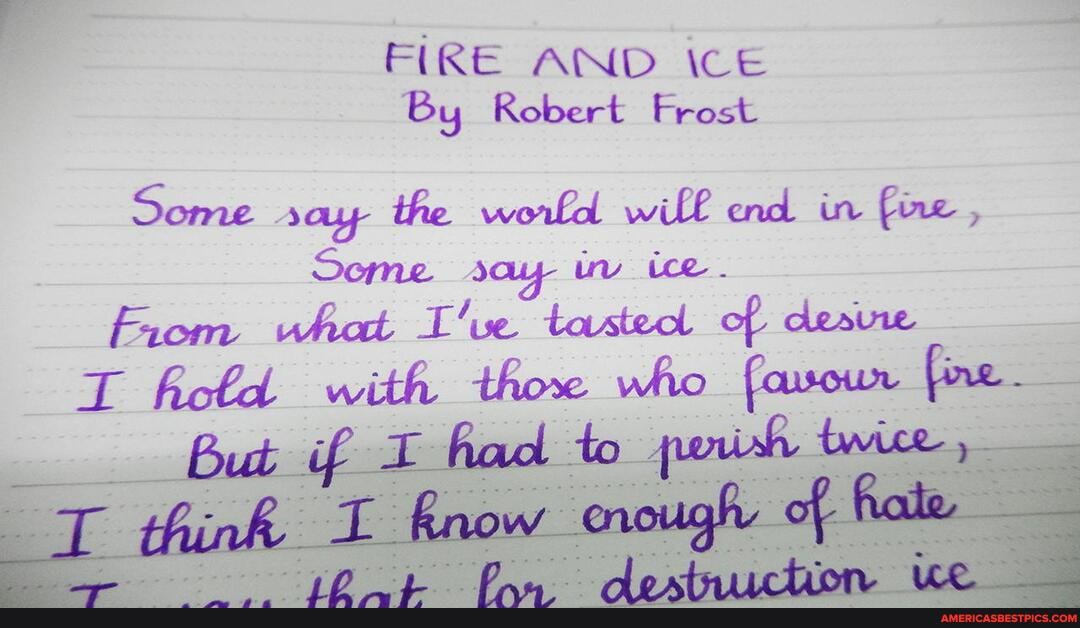 FIRE AND ICE
By Robert Frost
Some say the world will end in fire,
Some say in ice.
From what I've tasted of desire
I hold with those who favour fire.
But if I had to perish twice,
I think I know enough of hate
I that for destruction ice
AMERICASBESTPICS.COM